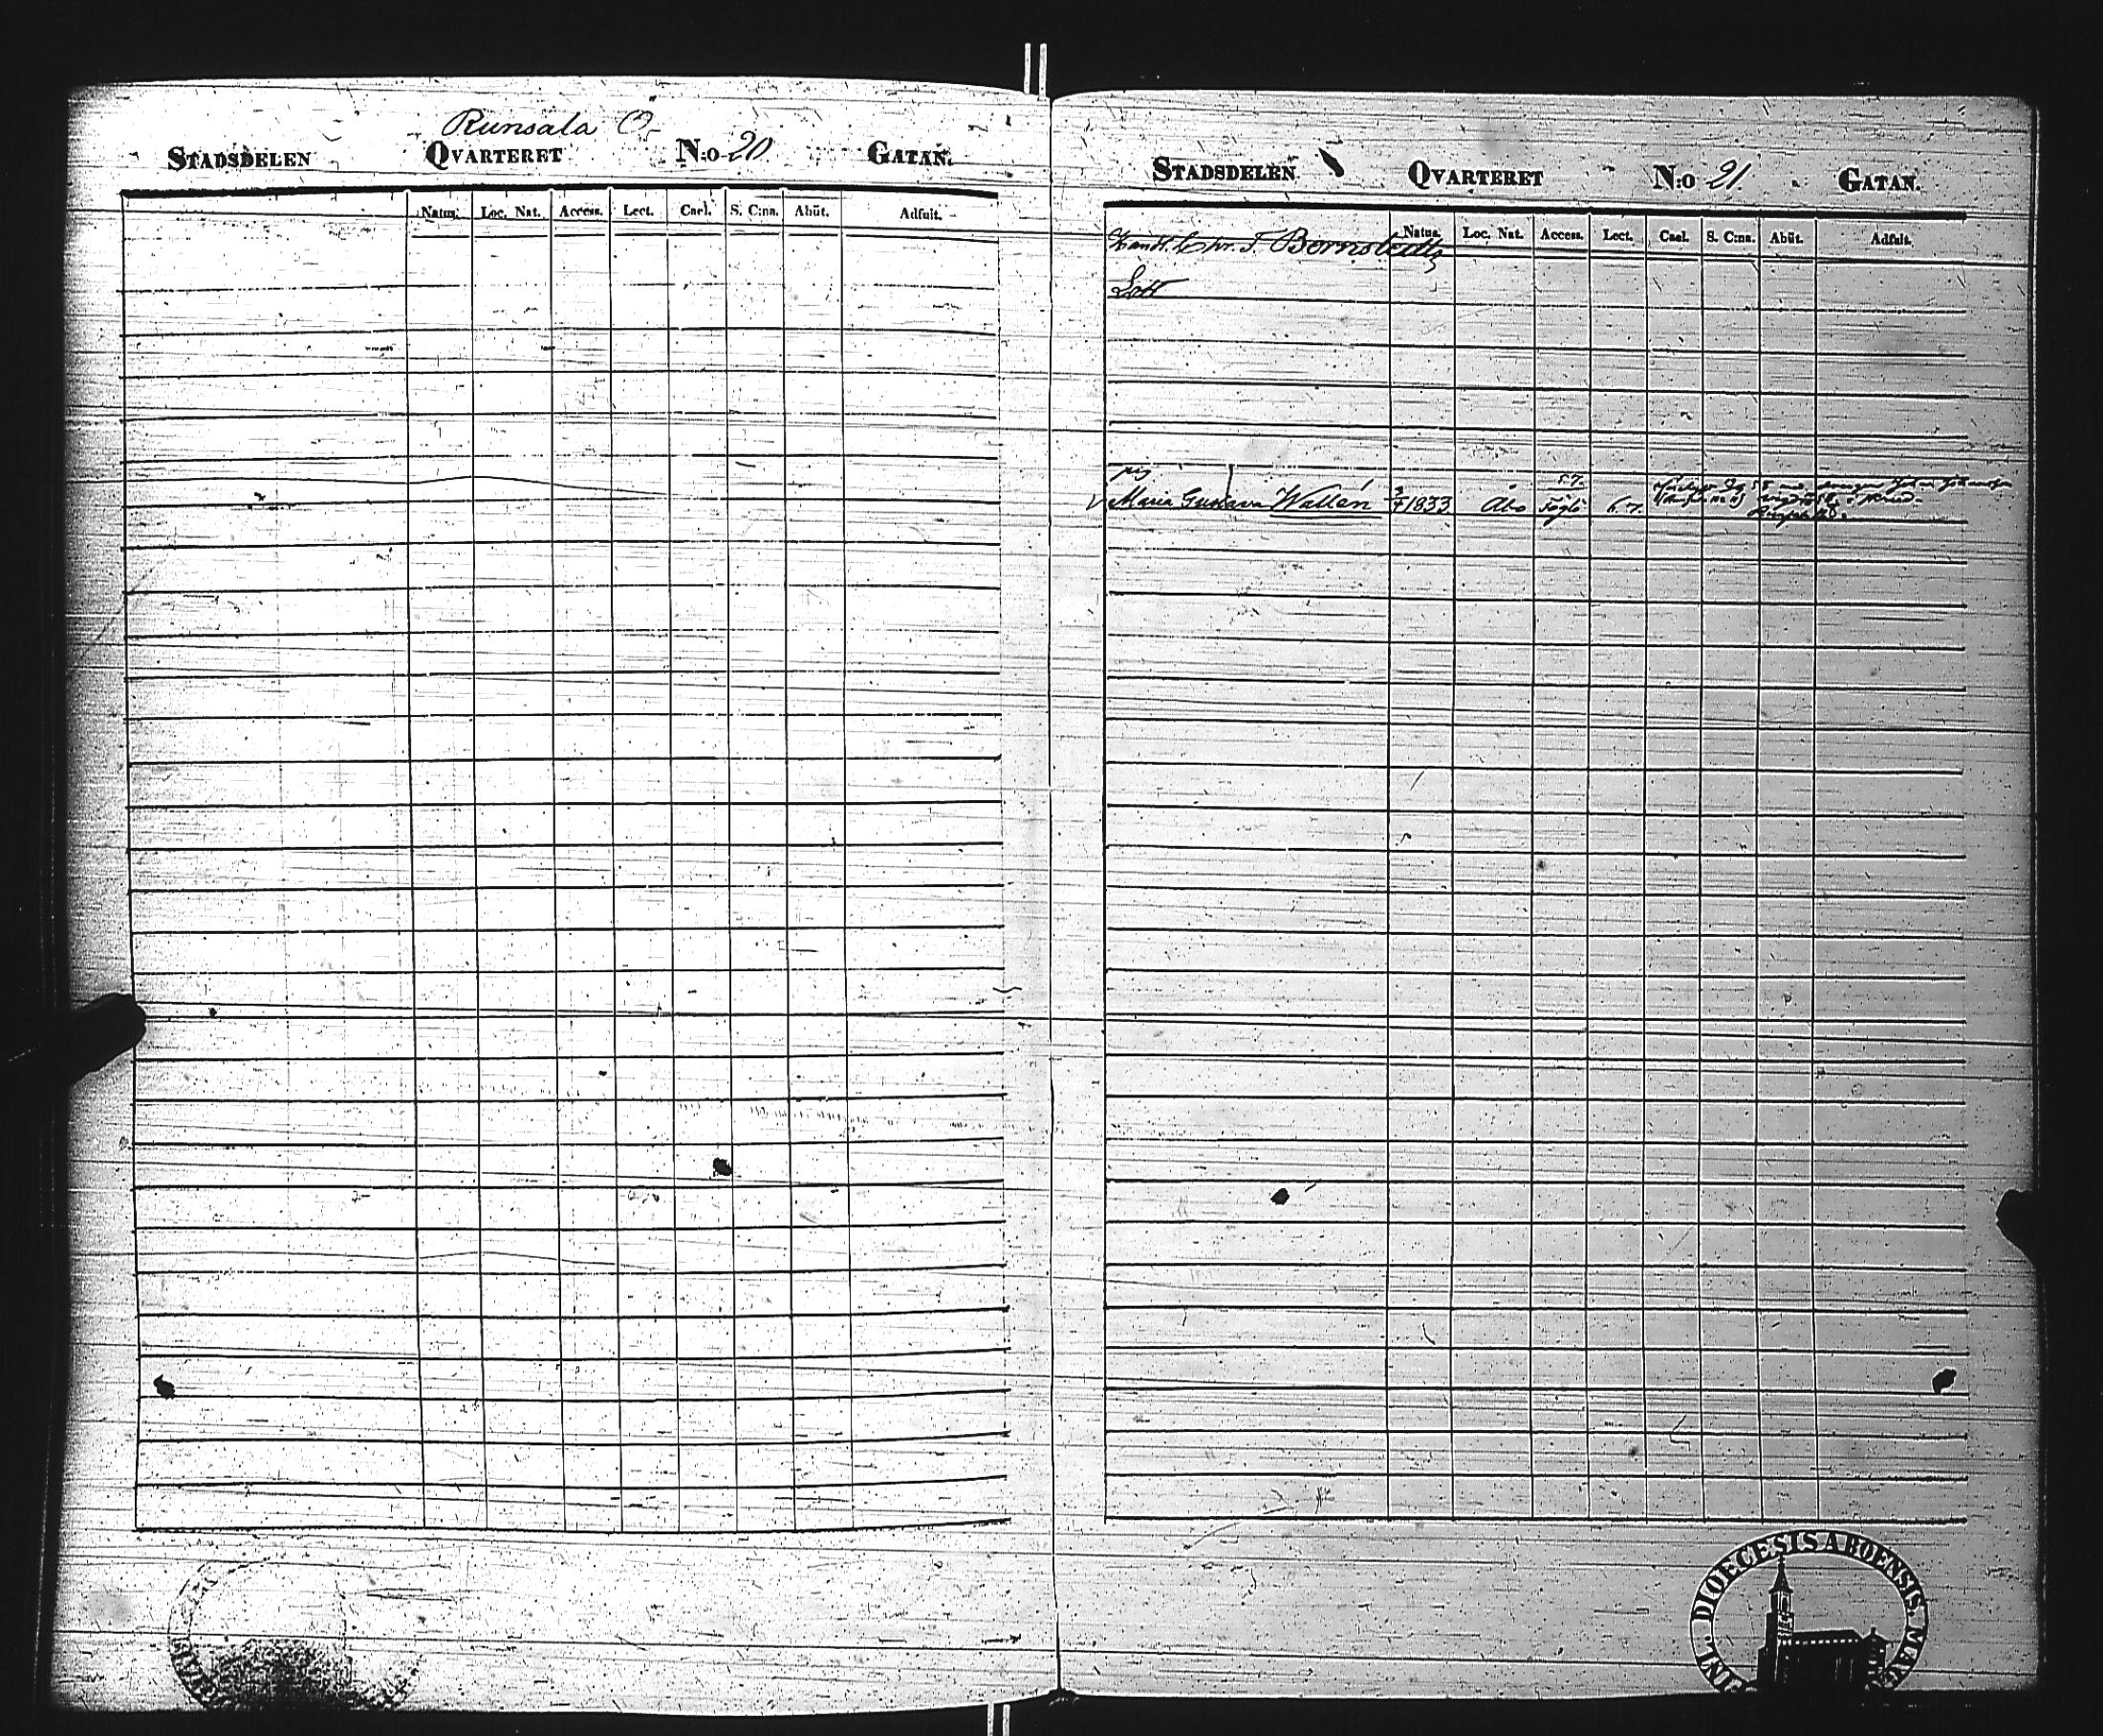 Runsala Ö.
STADSDELEN QVARTERET N:o 20 GATAN.
Natus. Loc. Nat. Access. Lect. Cael. S. C:na. Abiit. Adfuit.
STADSDELEN QVARTERET N:o 21. GATAN.
Natus. Loc. Nat. Access. Lect. Cael. S. C:na. Abiit. Adfuit.
Handl. Chr. F. Bornstedts
Lott
pig 57.
Maria Gustava Wallén 1833 Åbo Föglö 67.
DIOECESIS ABOENSIS.